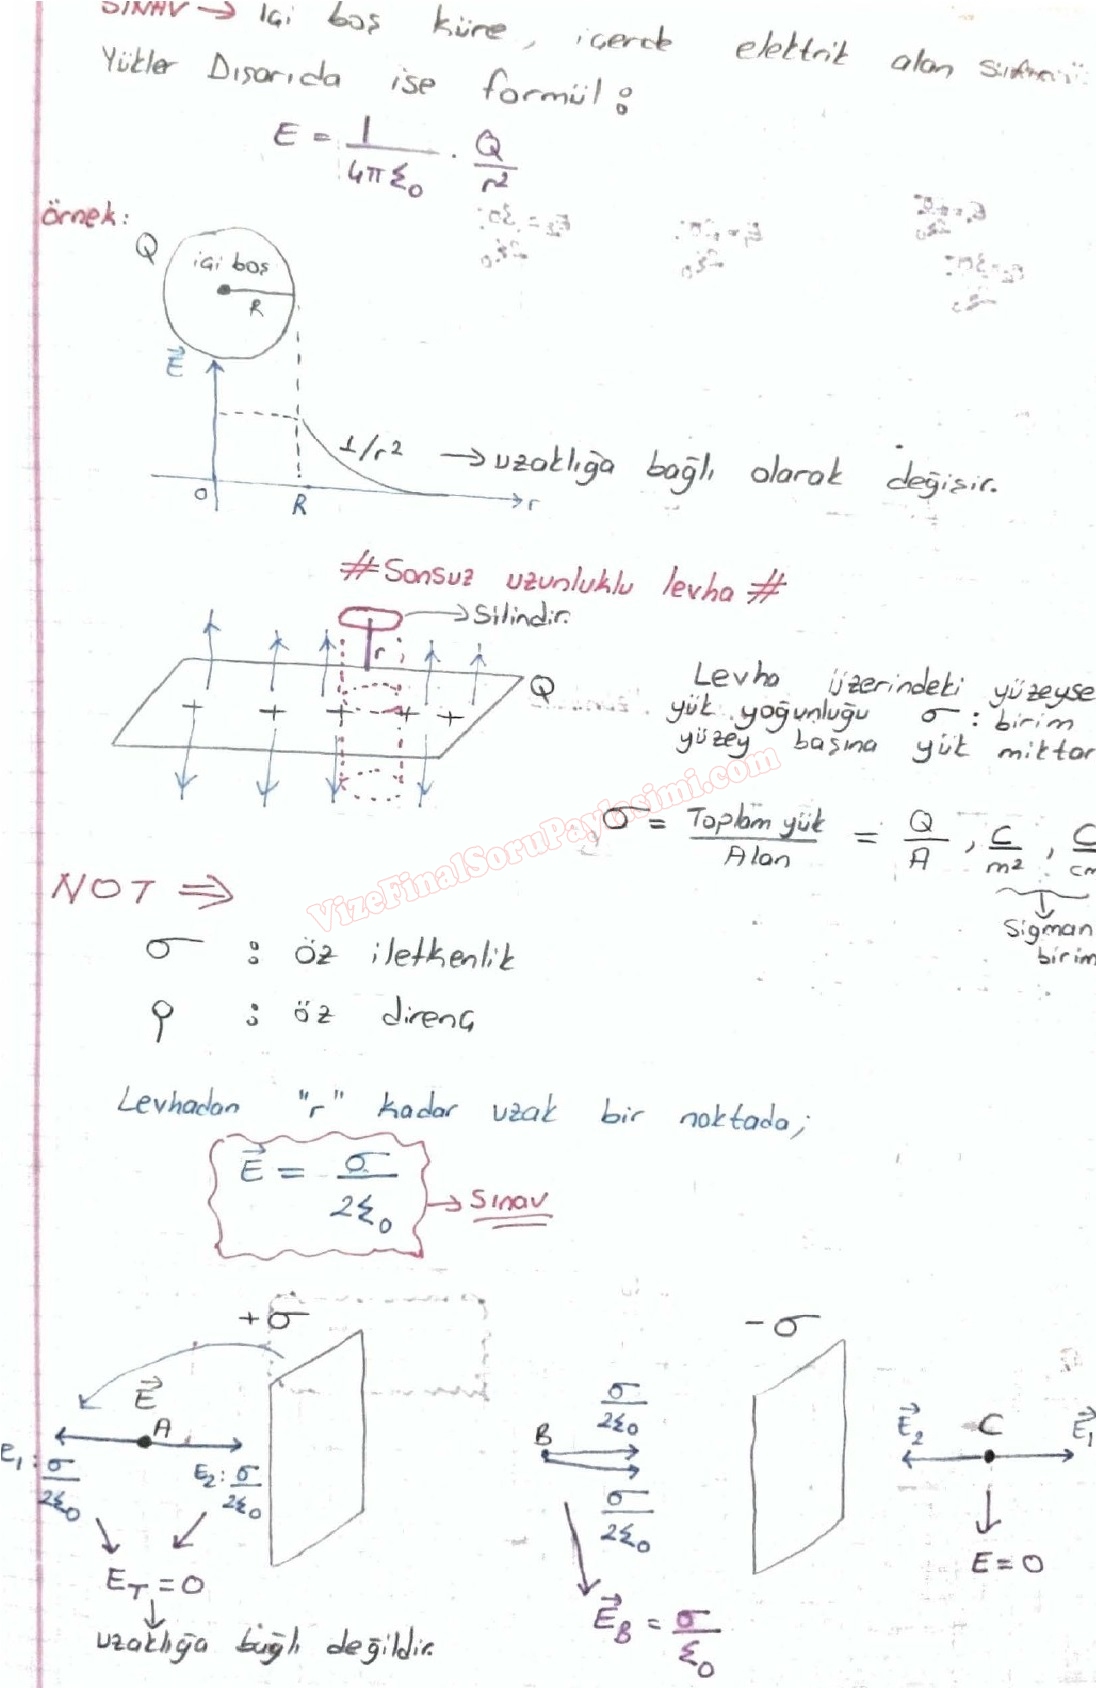 SINAV → İçi boş küre, içerde elektrik alan sıfırdır.
Yükler Dışarıda ise formül:
E = 1/4πε₀ . Q/r²
örnek:
Q
içi boş
R
E
1/r² → uzaklığa bağlı olarak değişir.
0 R r
# Sonsuz uzunluklu levha #
→ Silindir.
r
Q
Levha üzerindeki yüzeyse
yük yoğunluğu σ : birim
yüzey başına yük miktar
σ = Toplam yük/Alan = Q/A , C/m² , C/cm
Sigman
birim
VizeFinalSoruPaylasimi.com
NOT ⇒
σ : öz iletkenlik
ρ : öz direnç
Levhadan "r" kadar uzak bir noktada;
E = σ/2ε₀ → Sınav
+σ
-σ
E
A
E₁: σ/2ε₀
E₂: σ/2ε₀
E_T = 0
uzaklığa bağlı değildir.
B
σ/2ε₀
σ/2ε₀
E_B = σ/ε₀
E₂ C E₁
E = 0